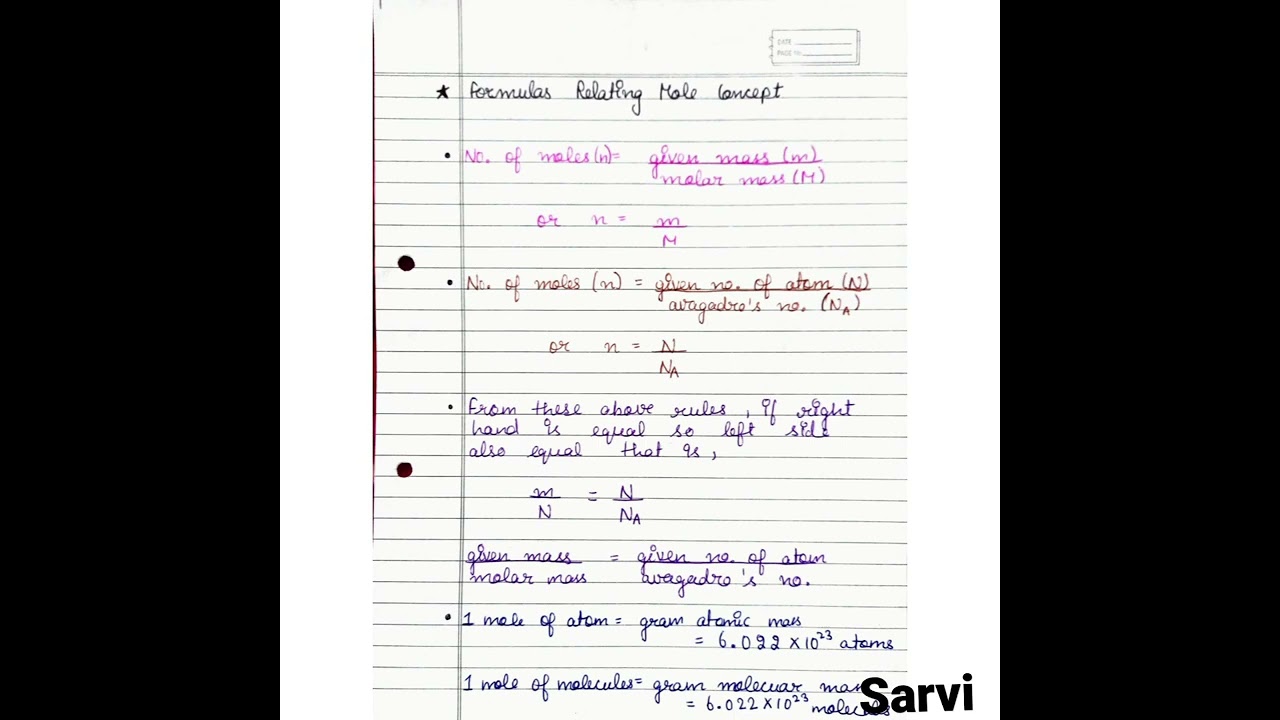 DATE
PAGE No.
★ Formulas Relating Mole Concept
• No. of moles (n) = given mass (m)
molar mass (M)
or n = m
M
• No. of moles (n) = given no. of atom (N)
avagadro's no. (NA)
or n = N
NA
• From these above rules, if right
hand is equal so left side
also equal that is,
m = N
N NA
given mass = given no. of atom
molar mass avagadro's no.
• 1 mole of atom = gram atomic mass
= 6.022 × 10²³ atoms
1 mole of molecules = gram molecuar
= 6.022 × 10²³ molecules
Sarvi